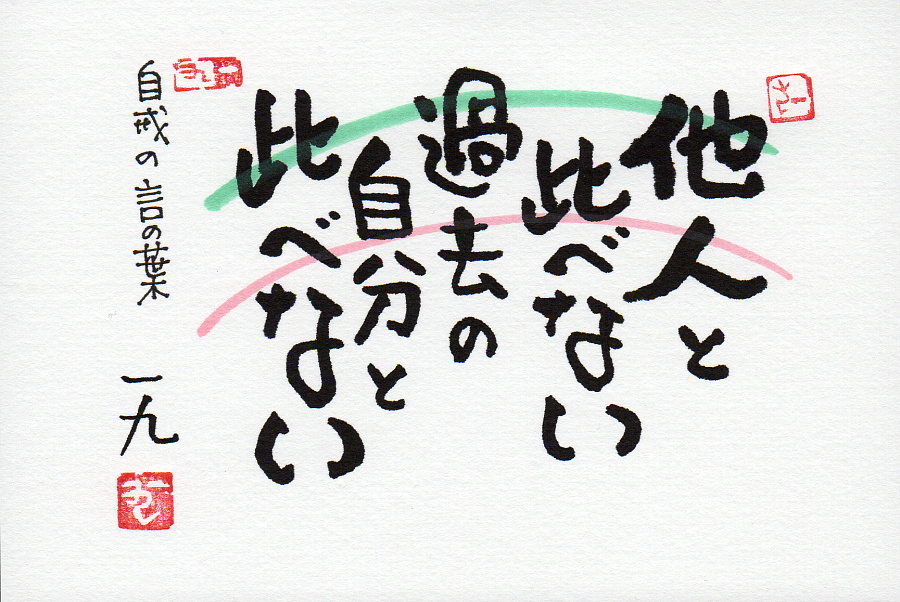 他人と
比べない
過去の
自分と
比べない
自戒の言の葉
一九